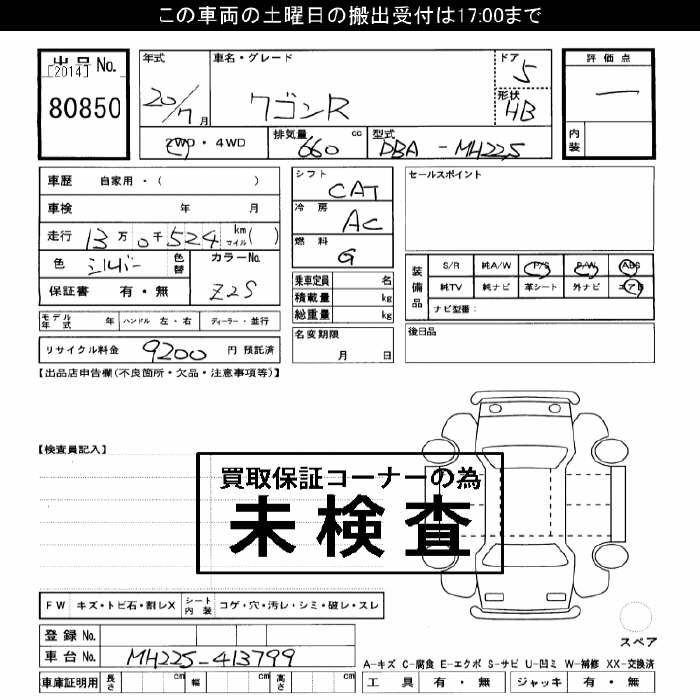 この車両の土曜日の搬出受付は17:00まで
出品 No.
[2014]
80850
年式
20/7月
車名・グレード
ワゴンR
ドア
5
形状
HB
2WD・4WD
排気量 660 cc
型式 DBA-MH22S
評価点
一
内装
車歴 自家用・( )
車検 年 月
走行 13万0千524 km マイル( )
色 シルバー 色替
カラーNo.
Z2S
保証書 有・無
モデル年式 年 ハンドル 左・右 ディーラー・並行
リサイクル料金 9200 円 預託済
シフト
CAT
冷房
AC
燃料
G
乗車定員 名
積載量 kg
総重量 kg
名変期限
月 日
セールスポイント
装備品
S/R 純A/W P/S P/W ABS
純TV 純ナビ 革シート 外ナビ エアB
ナビ型番:
後日品
【出品店申告欄(不良箇所・欠品・注意事項等)】
【検査員記入】
買取保証コーナーの為
未検査
FW キズ・トビ石・割レX シート内装 コゲ・穴・汚レ・シミ・破レ・スレ
登録 No.
車台 No. MH22S-413799
車庫証明用 長さ cm 幅 cm 高さ cm
スペア
A-キズ C-腐食 E-エクボ S-サビ U-凹ミ W-補修 XX-交換済
工具 有・無 ジャッキ 有・無